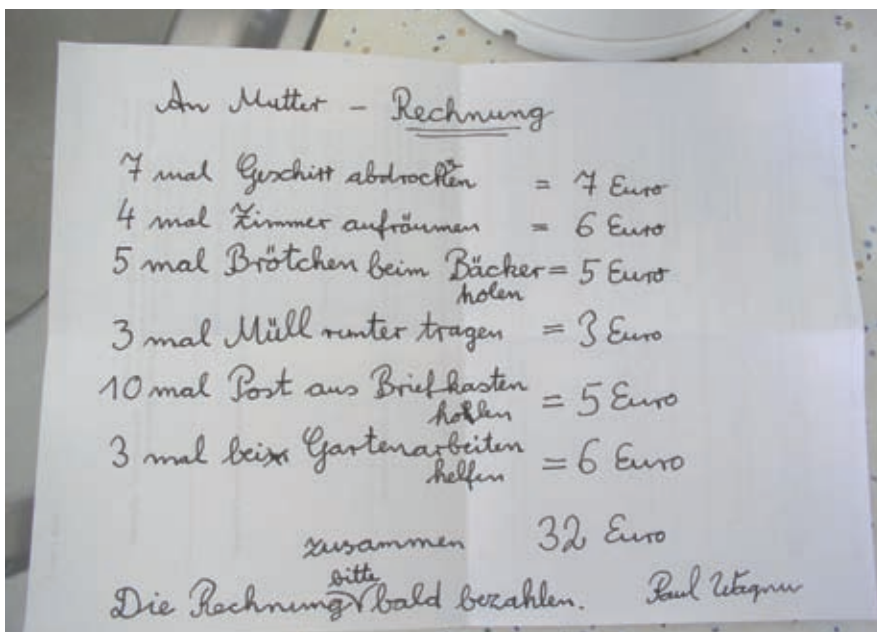 An Mutter - Rechnung
7 mal Geschirr abdrockten = 7 Euro
4 mal Zimmer aufräumen = 6 Euro
5 mal Brötchen beim Bäcker = 5 Euro
holen
3 mal Müll runter tragen = 3 Euro
10 mal Post aus Briefkasten
holen = 5 Euro
3 mal bei Gartenarbeiten
helfen = 6 Euro
zusammen 32 Euro
bitte
Die Rechnung bald bezahlen. Paul Wagner